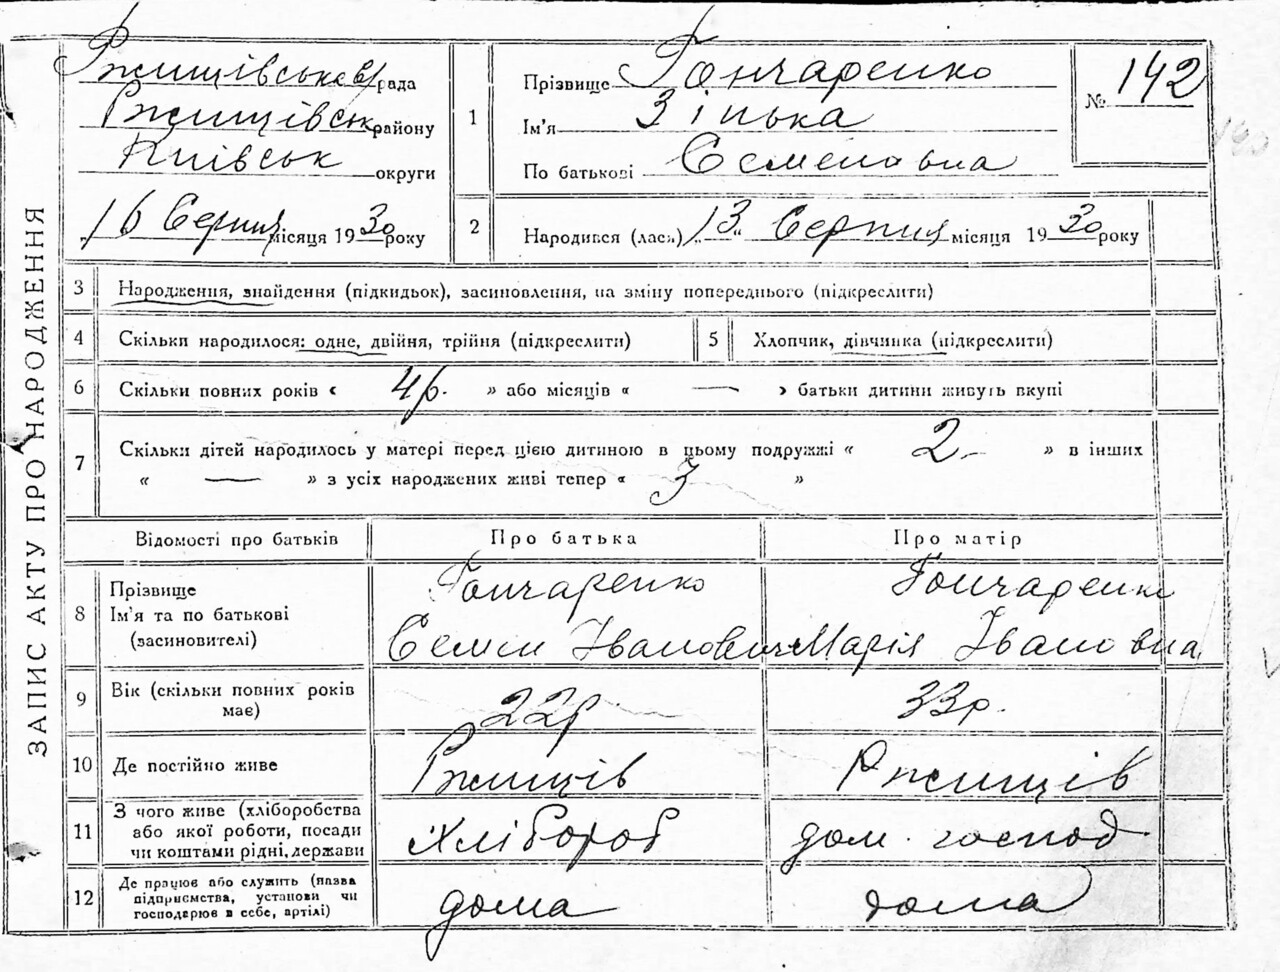 ЗАПИС АКТУ ПРО НАРОДЖЕННЯ
Ржищівська с/рада
Ржищівськ району
Київськ округи
16 Серпня місяця 1930 року
1
Прізвище Гончаренко
Ім'я Зінька
По батькові Семеновна
№ 142
2
Народився (лася) "13" Серпня місяця 1930 року
3 Народження, знайдення (підкидьок), засиновлення, на зміну попереднього (підкреслити)
4 Скільки народилося: одне, двійня, трійня (підкреслити)
5 Хлопчик, дівчинка (підкреслити)
6 Скільки повних років « 4 р. » або місяців « — » батьки дитини живуть вкупі
7 Скільки дітей народилось у матері перед цією дитиною в цьому подружжі « 2 - » в інших
« — » з усіх народжених живі тепер « 3 »
Відомості про батьків Про батька Про матір
8 Прізвище
Ім'я та по батькові
(засиновителі)
Гончаренко
Семен Іванович
Гончаренко
Марія Івановна
9 Вік (скільки повних років
має)
22 р
33 р.
10 Де постійно живе Ржищів Ржищів
11 З чого живе (хліборобства
або якої роботи, посади
чи коштами рідні, держави
Хлібороб
дом. господ
12 Де працює або служить (назва
підприємства, установи чи
господарює в себе, артілі)
дома
дома